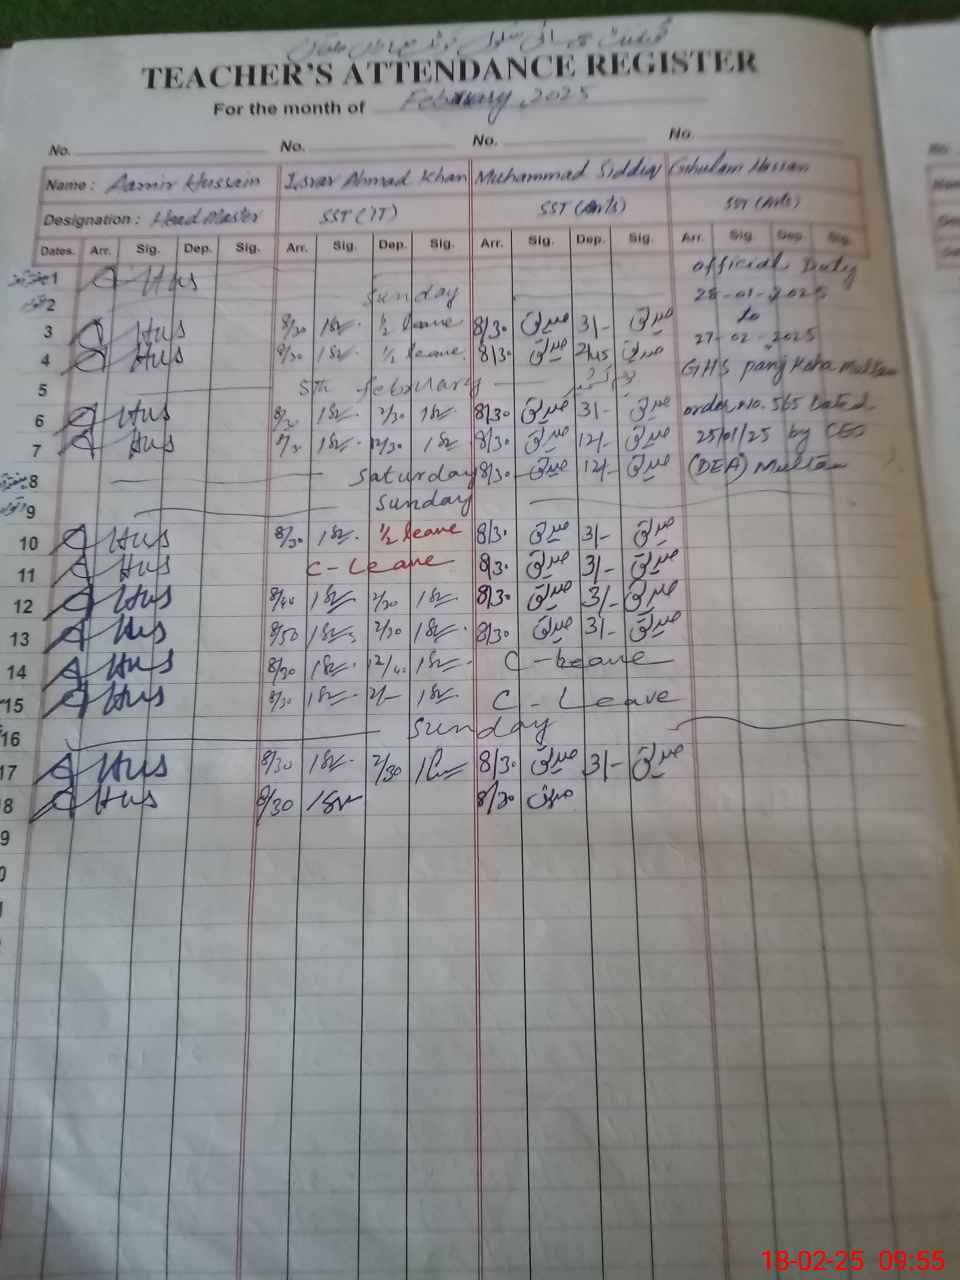 TEACHER'S ATTENDANCE REGISTER
For the month of February, 2025
No. No. No. No.
Name : Aamir Hussain Israr Ahmad Khan Muhammad Siddiq Ghulam Hassan
Designation : Head Master SST (IT) SST (Arts) SST (Arts)
Dates. Arr. Sig. Dep. Sig. Arr. Sig. Dep. Sig. Arr. Sig. Dep. Sig. Arr. Sig. Dep. Sig.
1 Hus official Duty
2 Sunday 28-01-2025
to
3 Hus 8/30 1/2 leave 8/30 صدیق 3/- صدیق 27-02-2025
4 Hus 8/30 1/2 leave 8/30 صدیق 2/45 صدیق GHS
5 5th february
6 Hus 8/30 2/30 8/30 صدیق 3/- صدیق order No. 565 Dated
7 Hus 12/30 8/30 صدیق 12/- صدیق 25/01/25 by CEO
8 Saturday 8/30 صدیق 12/- صدیق (DEA) Multan
9 Sunday
10 Hus 8/30 1/2 leave 8/30 صدیق 3/- صدیق
11 Hus C-Leave 8/30 صدیق 3/- صدیق
12 Hus 8/40 2/30 8/30 صدیق 3/- صدیق
13 Hus 8/50 2/30 8/30 صدیق 3/- صدیق
14 Hus 8/30 12/40 C-Leave
15 Hus 8/30 2/- C-Leave
16 Sunday
17 Hus 8/30 2/30 8/30 صدیق 3/- صدیق
8 Hus 8/30 8/30 صدیق
9
0
18-02-25 09:55